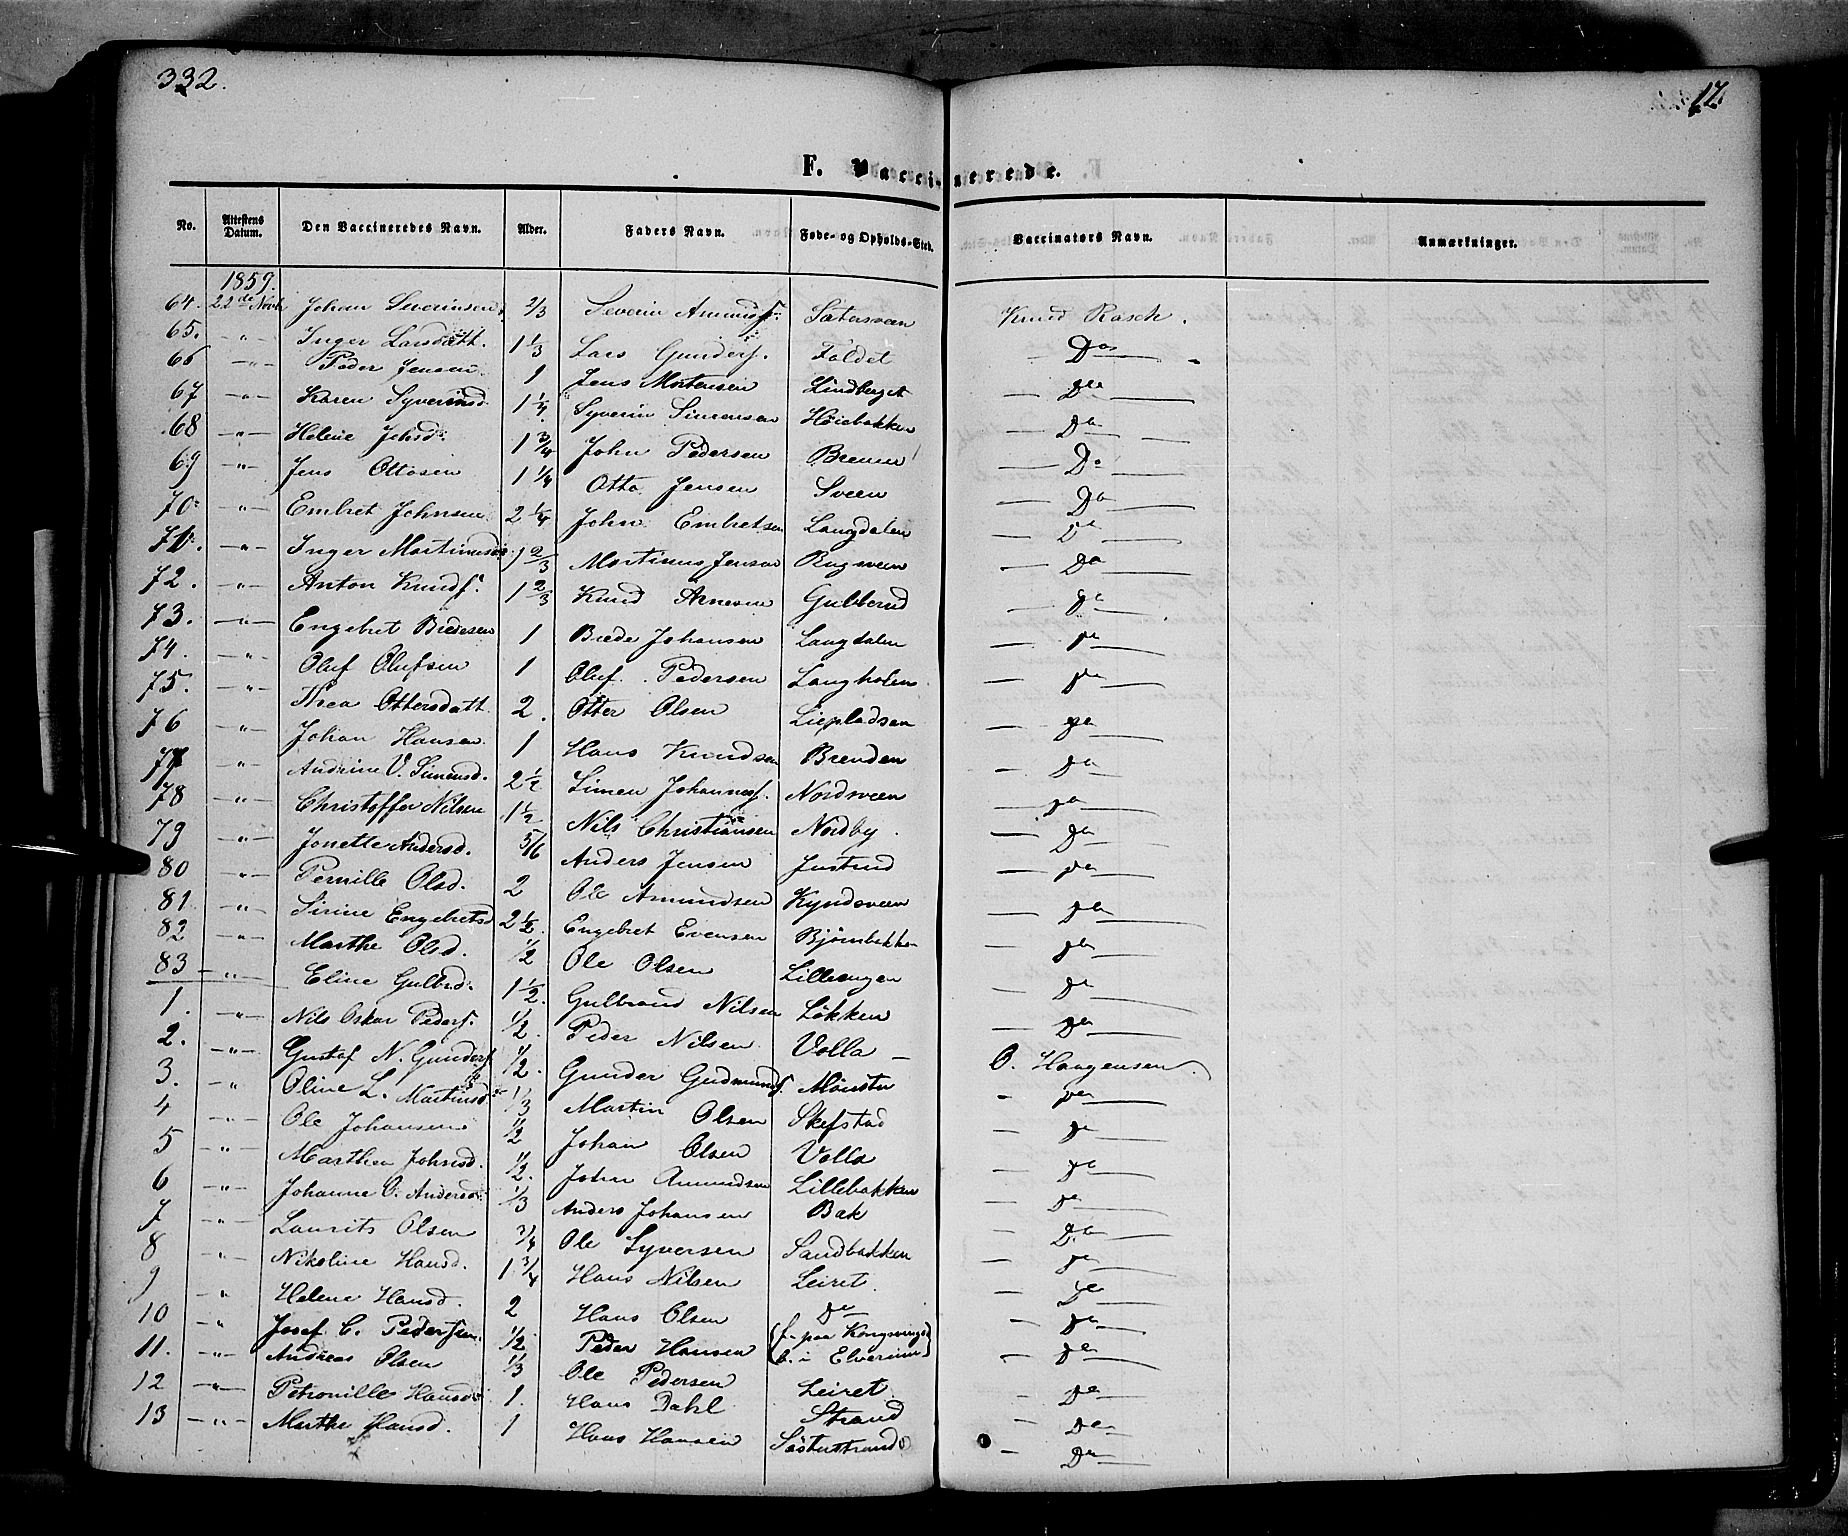 332.
17.
F. Vaccinerede.
No. Attestens Datum. Den Vaccineredes Navn. Alder. Faders Navn. Føde- og Opholds-Sted. Vaccinatørs Navn. Anmærkninger.
1859.
64. 22de Novb Johan Severinsen 2/3 Severin Amunds. Sætersveen Knud Rasch.
65. -"- Inger Larsdatt. 1 1/3 Lars Gunders. Foldet Do
66 -"- Peder Jensen 1 Jens Mortensen Lindberget Do
67 -"- Karen Syverinsd. 1 1/4 Syverin Simensen Høiebakken Do
68 -"- Helene Johsd. 1 3/4 John Pedersen Brenn Do
69 -"- Jens Ottosen 1 1/4 Otto Jensen Sveen Do
70 -"- Embret Johnsen 2 1/4 John Embretsen Langdalen Do
71. -"- Inger Martinusd. 1 2/3 Martinus Jensen Rugsveen Do
72. -"- Anton Knuds. 1 2/3 Knud Arnesen Gulberud Do
73. -"- Engebret Bredesen 1 Brede Johansen Langdalen Do
74. -"- Oluf Olufsen 1 Oluf Pedersen Langholen Do
75. -"- Thea Ottersdatt 2. Otter Olsen Liepladsen Do
76 -"- Johan Hansen 1 Hans Knudsen Brenden Do
77 -"- Andrine V. Simensd. 2 1/2 Simen Johanness. Nordsveen Do
78 -"- Christoffer Nilsen 1 1/2 Nils Christiansen Nordby. Do
79 -"- Jonette Andersd. 5/6 Anders Jensen Justrud Do
80 -"- Pernille Olsd. 2 Ole Amundsen Kyndsveen Do
81. -"- Sirine Engebretsd 2 1/2. Engebret Evensen Bjørnbakken Do
82 -"- Marthe Olsd. 1/2 Ole Olsen Lilleengen Do
83 -"- Eline Gulbrd. 1 1/2. Gulbrand Nilsen Løkken Do
1. -"- Nils Oskar Peders. 1/2 Peder Nilsen Volla O. Haagensen.
2. -"- Gustaf N. Gunders. 1/2. Gunder Gudmunds. Mønster Do
3. -"- Oline L. Martinsd. 1/3 Martin Olsen Skefstad Do
4 -"- Ole Johansen 1/2 Johan Olsen Volla Do
5 -"- Marthea Johnsd. 1/2. John Amundsen Lillebakken Do
6 -"- Johanne O. Andersd. 1/3 Anders Johansen Bak Do
7 -"- Laurits Olsen 3/4 Ole Syversen Sandbakken Do
8 -"- Nikoline Hansd. 1 3/4 Hans Nilsen Leiret. Do
9 " Helene Hansd. 2 Hans Olsen Do Do
10 " Josef C. Pedersen. 1/2 Peder Hansen {f. paa Kongsvinger b. i Elverum} Do
11. -"- Andreas Olsen 1/3 Ole Pedersen Leiret. Do
12 -"- Petronille Hansd. 1. Hans Dahl Strand Do
13 -"- Marthe Hansd. 1 Hans Hansen Søsterstrand Do